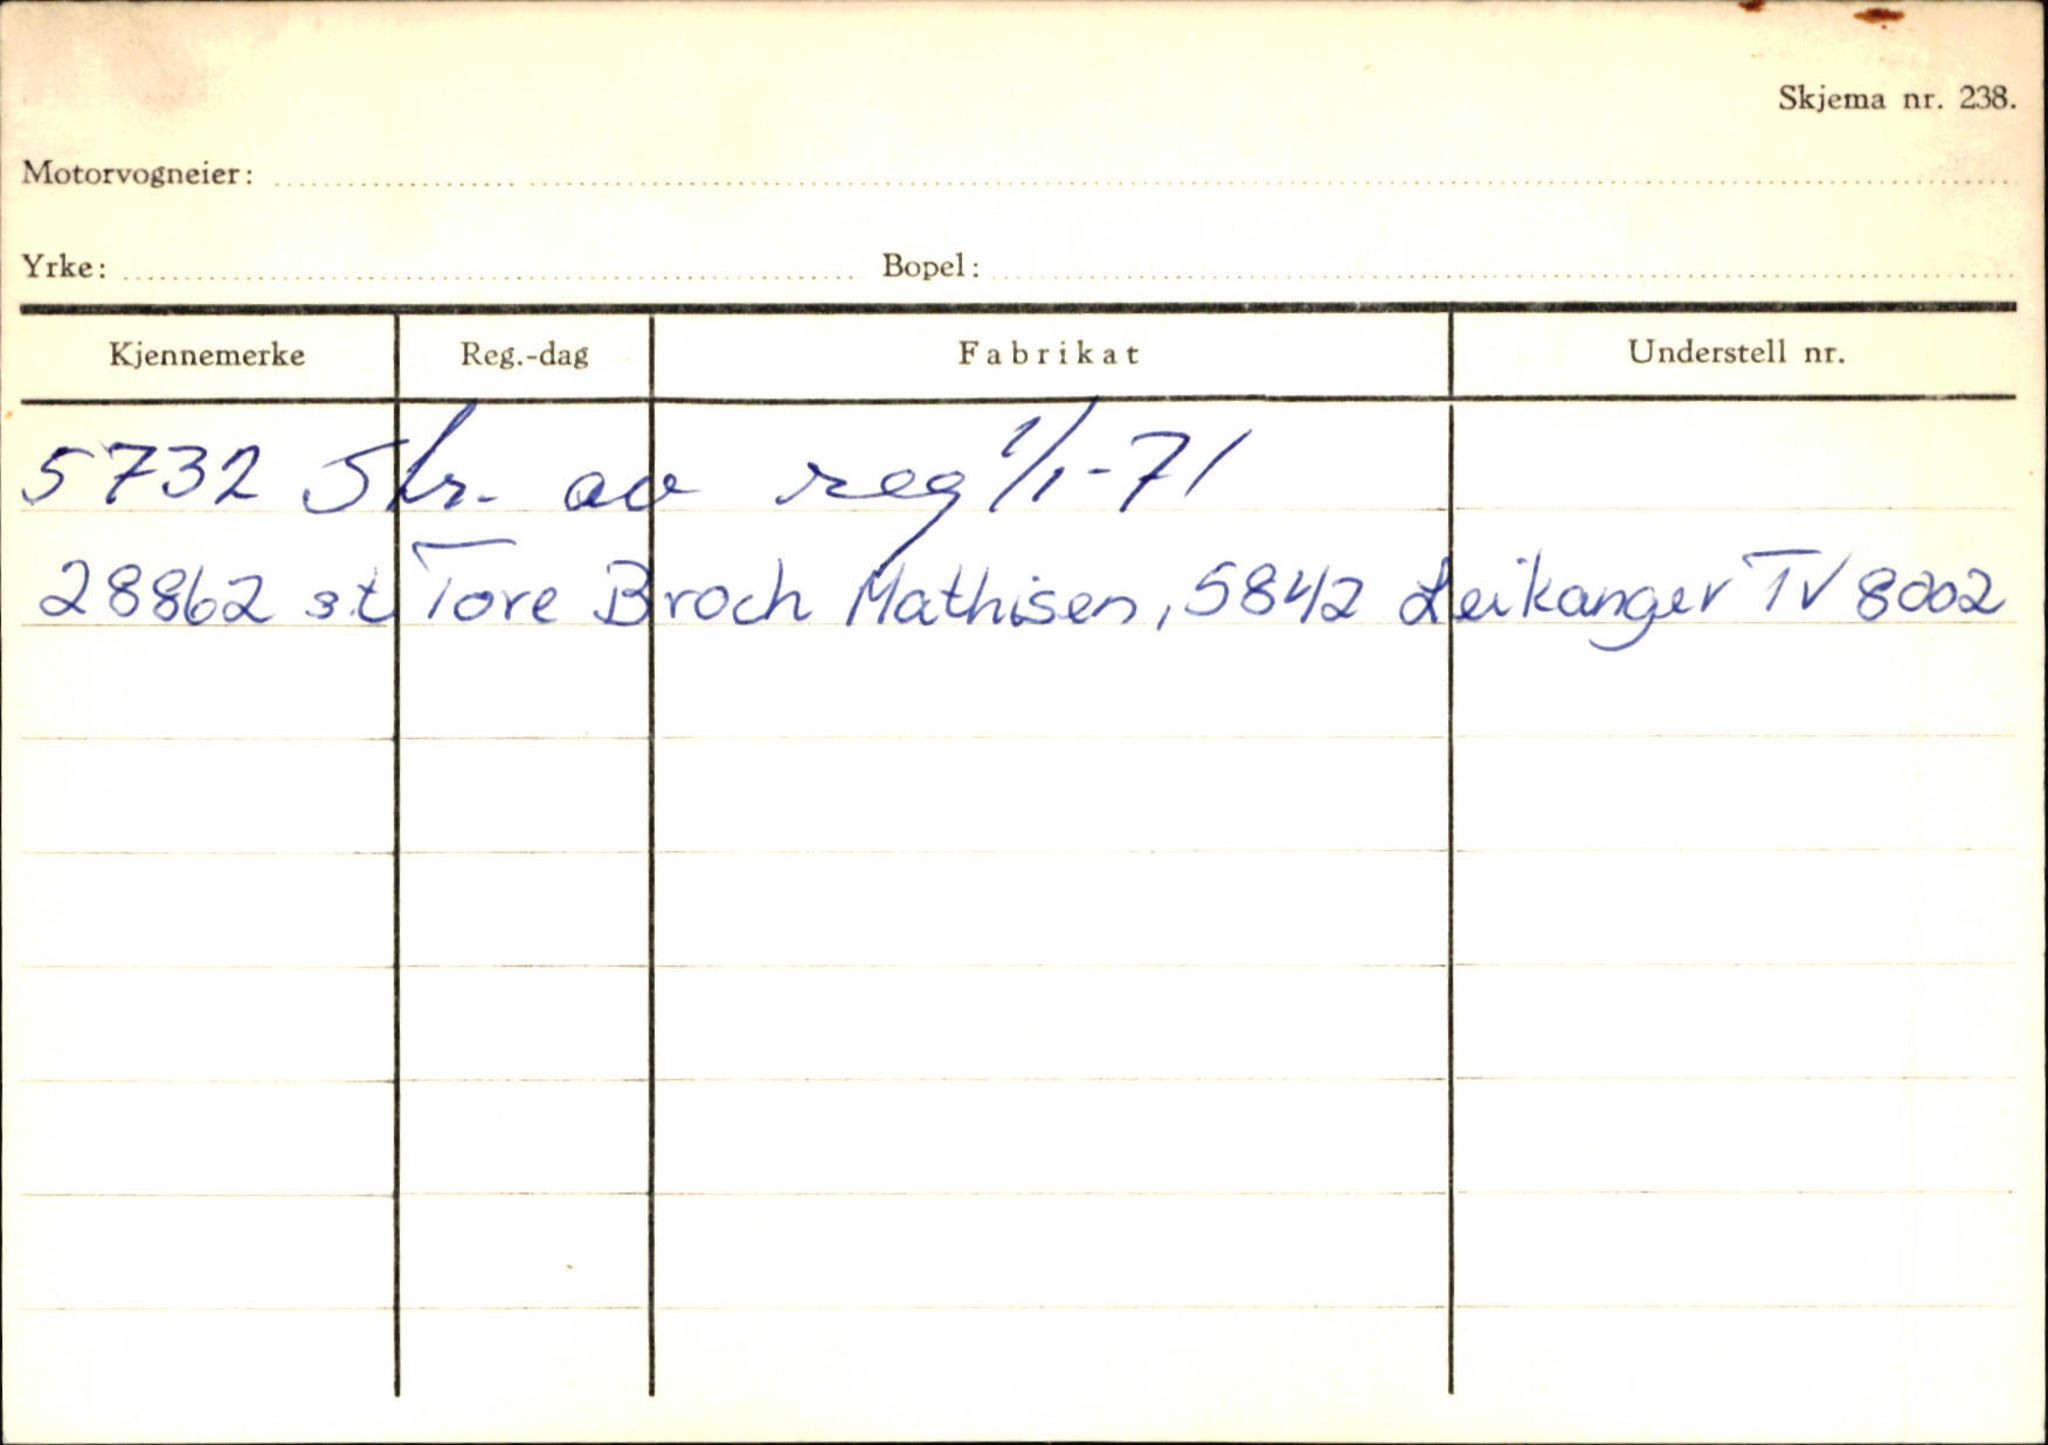 Skjema nr. 238.
Motorvogneier:
Yrke: Bopel:
Kjennemerke Reg.-dag Fabrikat Understell nr.
5732 Str. av reg 1/1-71
28862 st Tore Broch Mathisen, 5842 Leikanger TV 8002